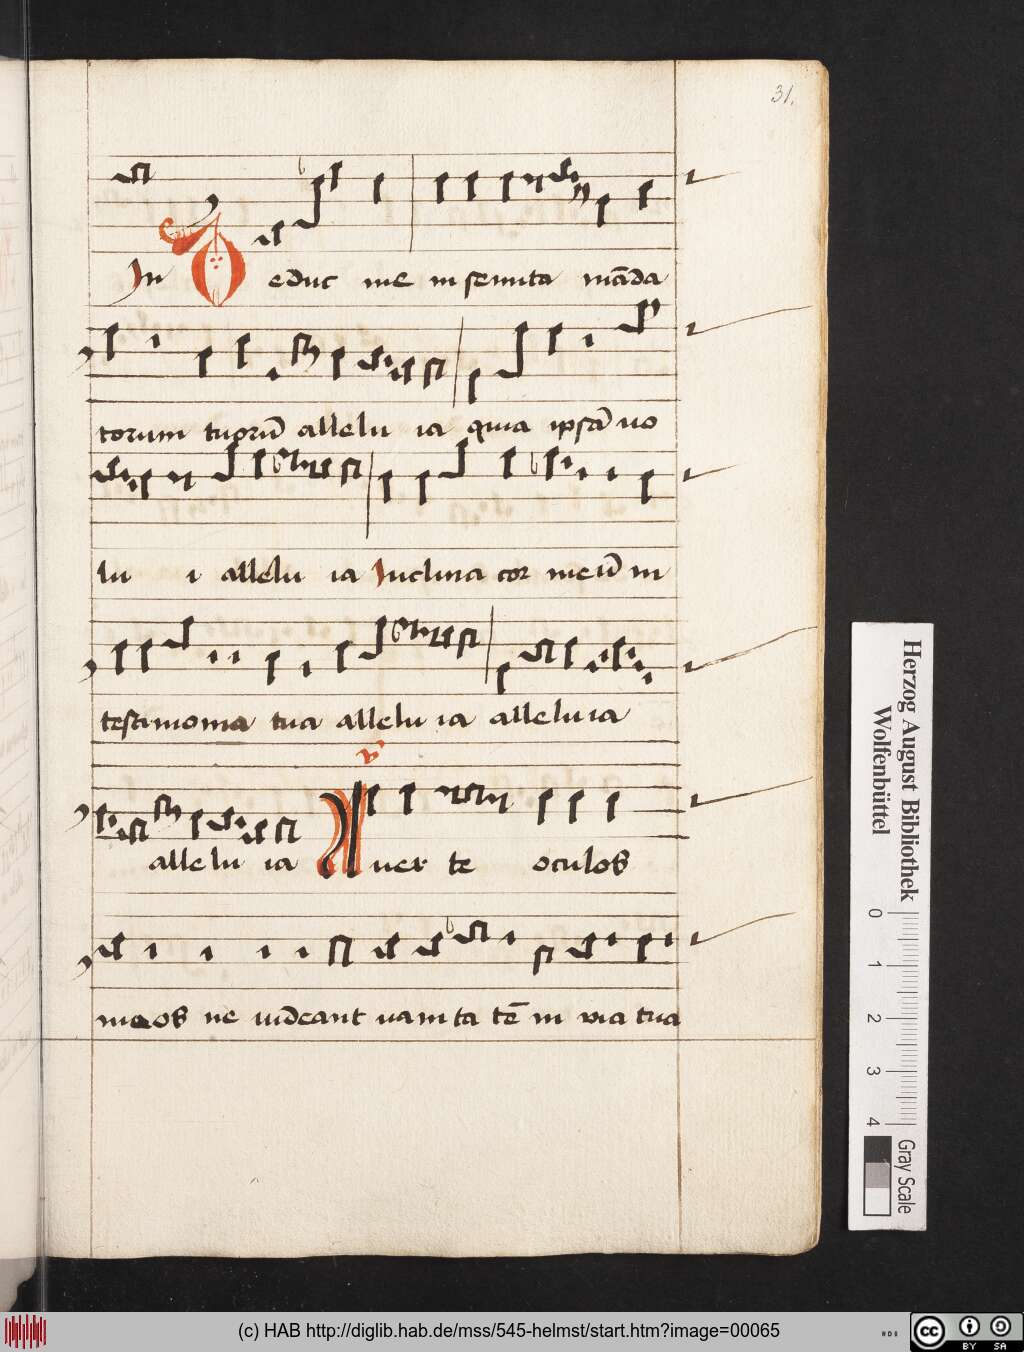 31.
In Deduc me in semita mãda
torum tuorũ allelu ia quia ipsã uo
lu i allelu ia Inclina cor meũ in
testimonia tua allelu ia alleluia
allelu ia Auer te oculos
meos ne uideant uanita tẽ in via tua
Herzog August Bibliothek
Wolfenbüttel
0 1 2 3 4
Gray Scale
(c) HAB http://diglib.hab.de/mss/545-helmst/start.htm?image=00065
cc BY SA